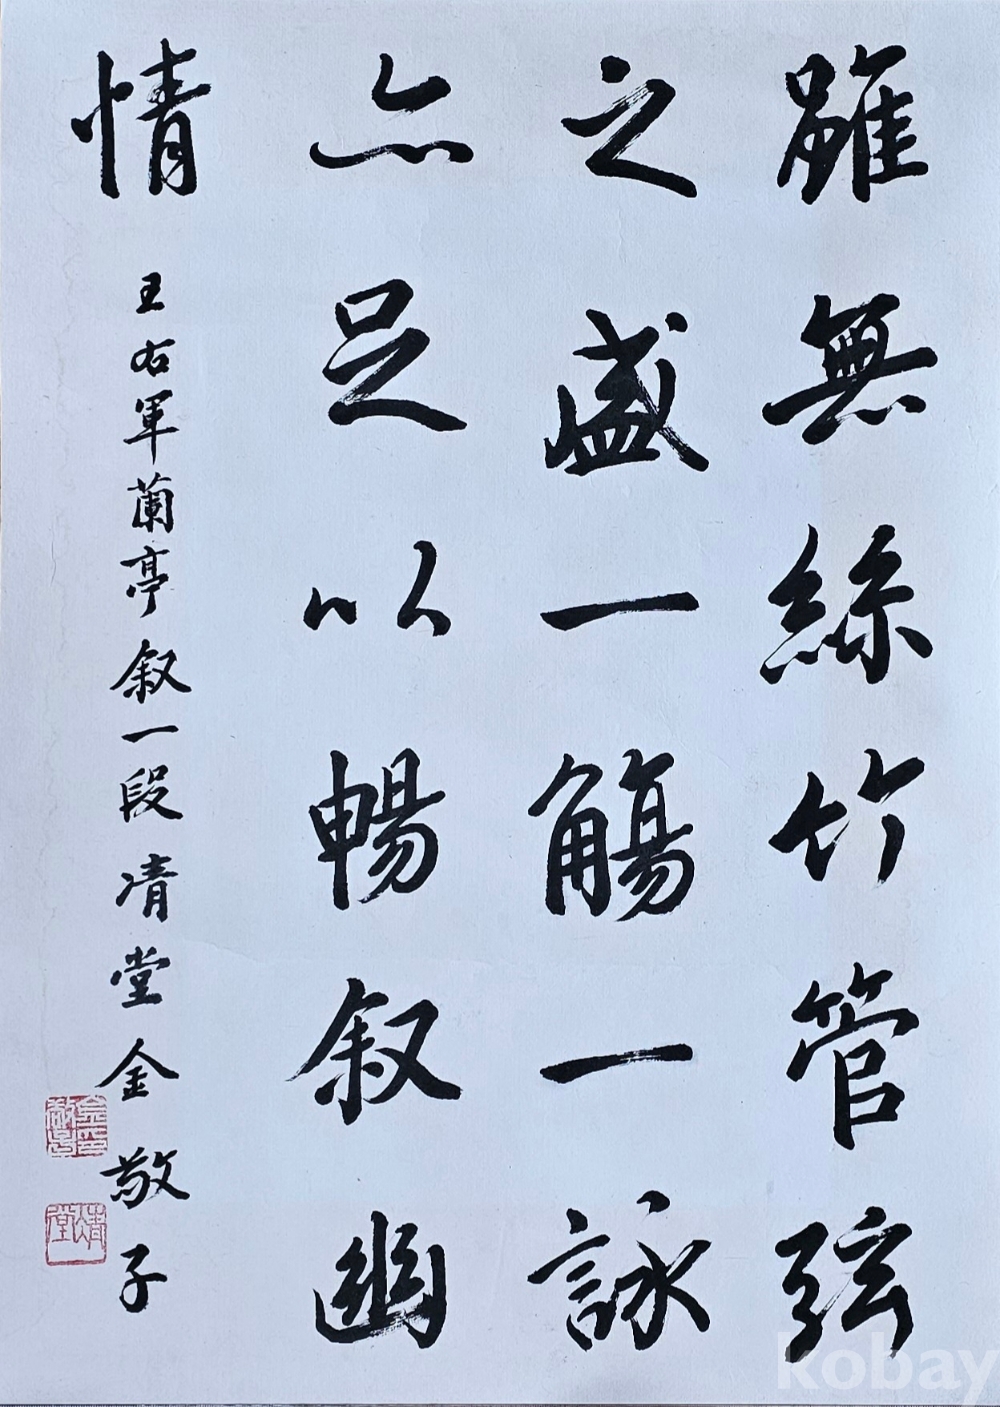 雖無絲竹管弦
之盛一觴一詠
亦足以暢叙幽
情
王右軍蘭亭叙一段 凊堂 金敬子
kobay